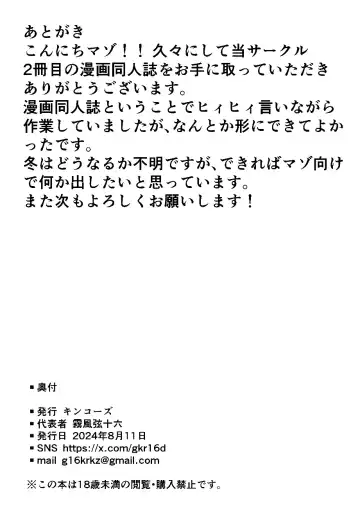 あとがき
こんにちマゾ！！ 久々にして当サークル
2冊目の漫画同人誌をお手に取っていただき
ありがとうございます。
漫画同人誌ということでヒィヒィ言いながら
作業していましたが、なんとか形にできてよか
ったです。
冬はどうなるか不明ですが、できればマゾ向け
で何か出したいと思っています。
また次もよろしくお願いします！
▪奥付
▪発行 キンコーズ
▪代表者 霧風弦十六
▪発行日 2024年8月11日
▪SNS https://x.com/gkr16d
▪mail g16krkz@gmail.com
※この本は18歳未満の閲覧・購入禁止です。